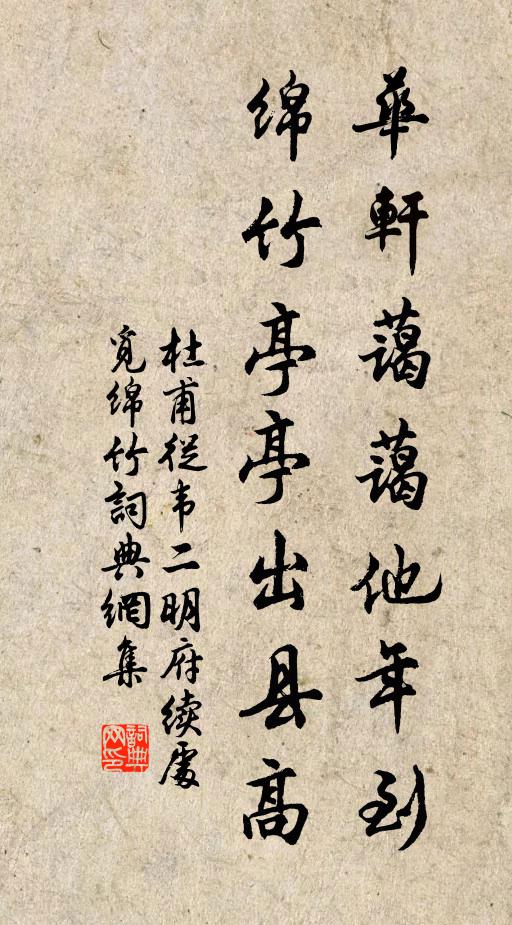 華軒藹藹他年到
绵竹亭亭出县高
杜甫從韦二明府续處
覓绵竹詞典網集
詞典网印